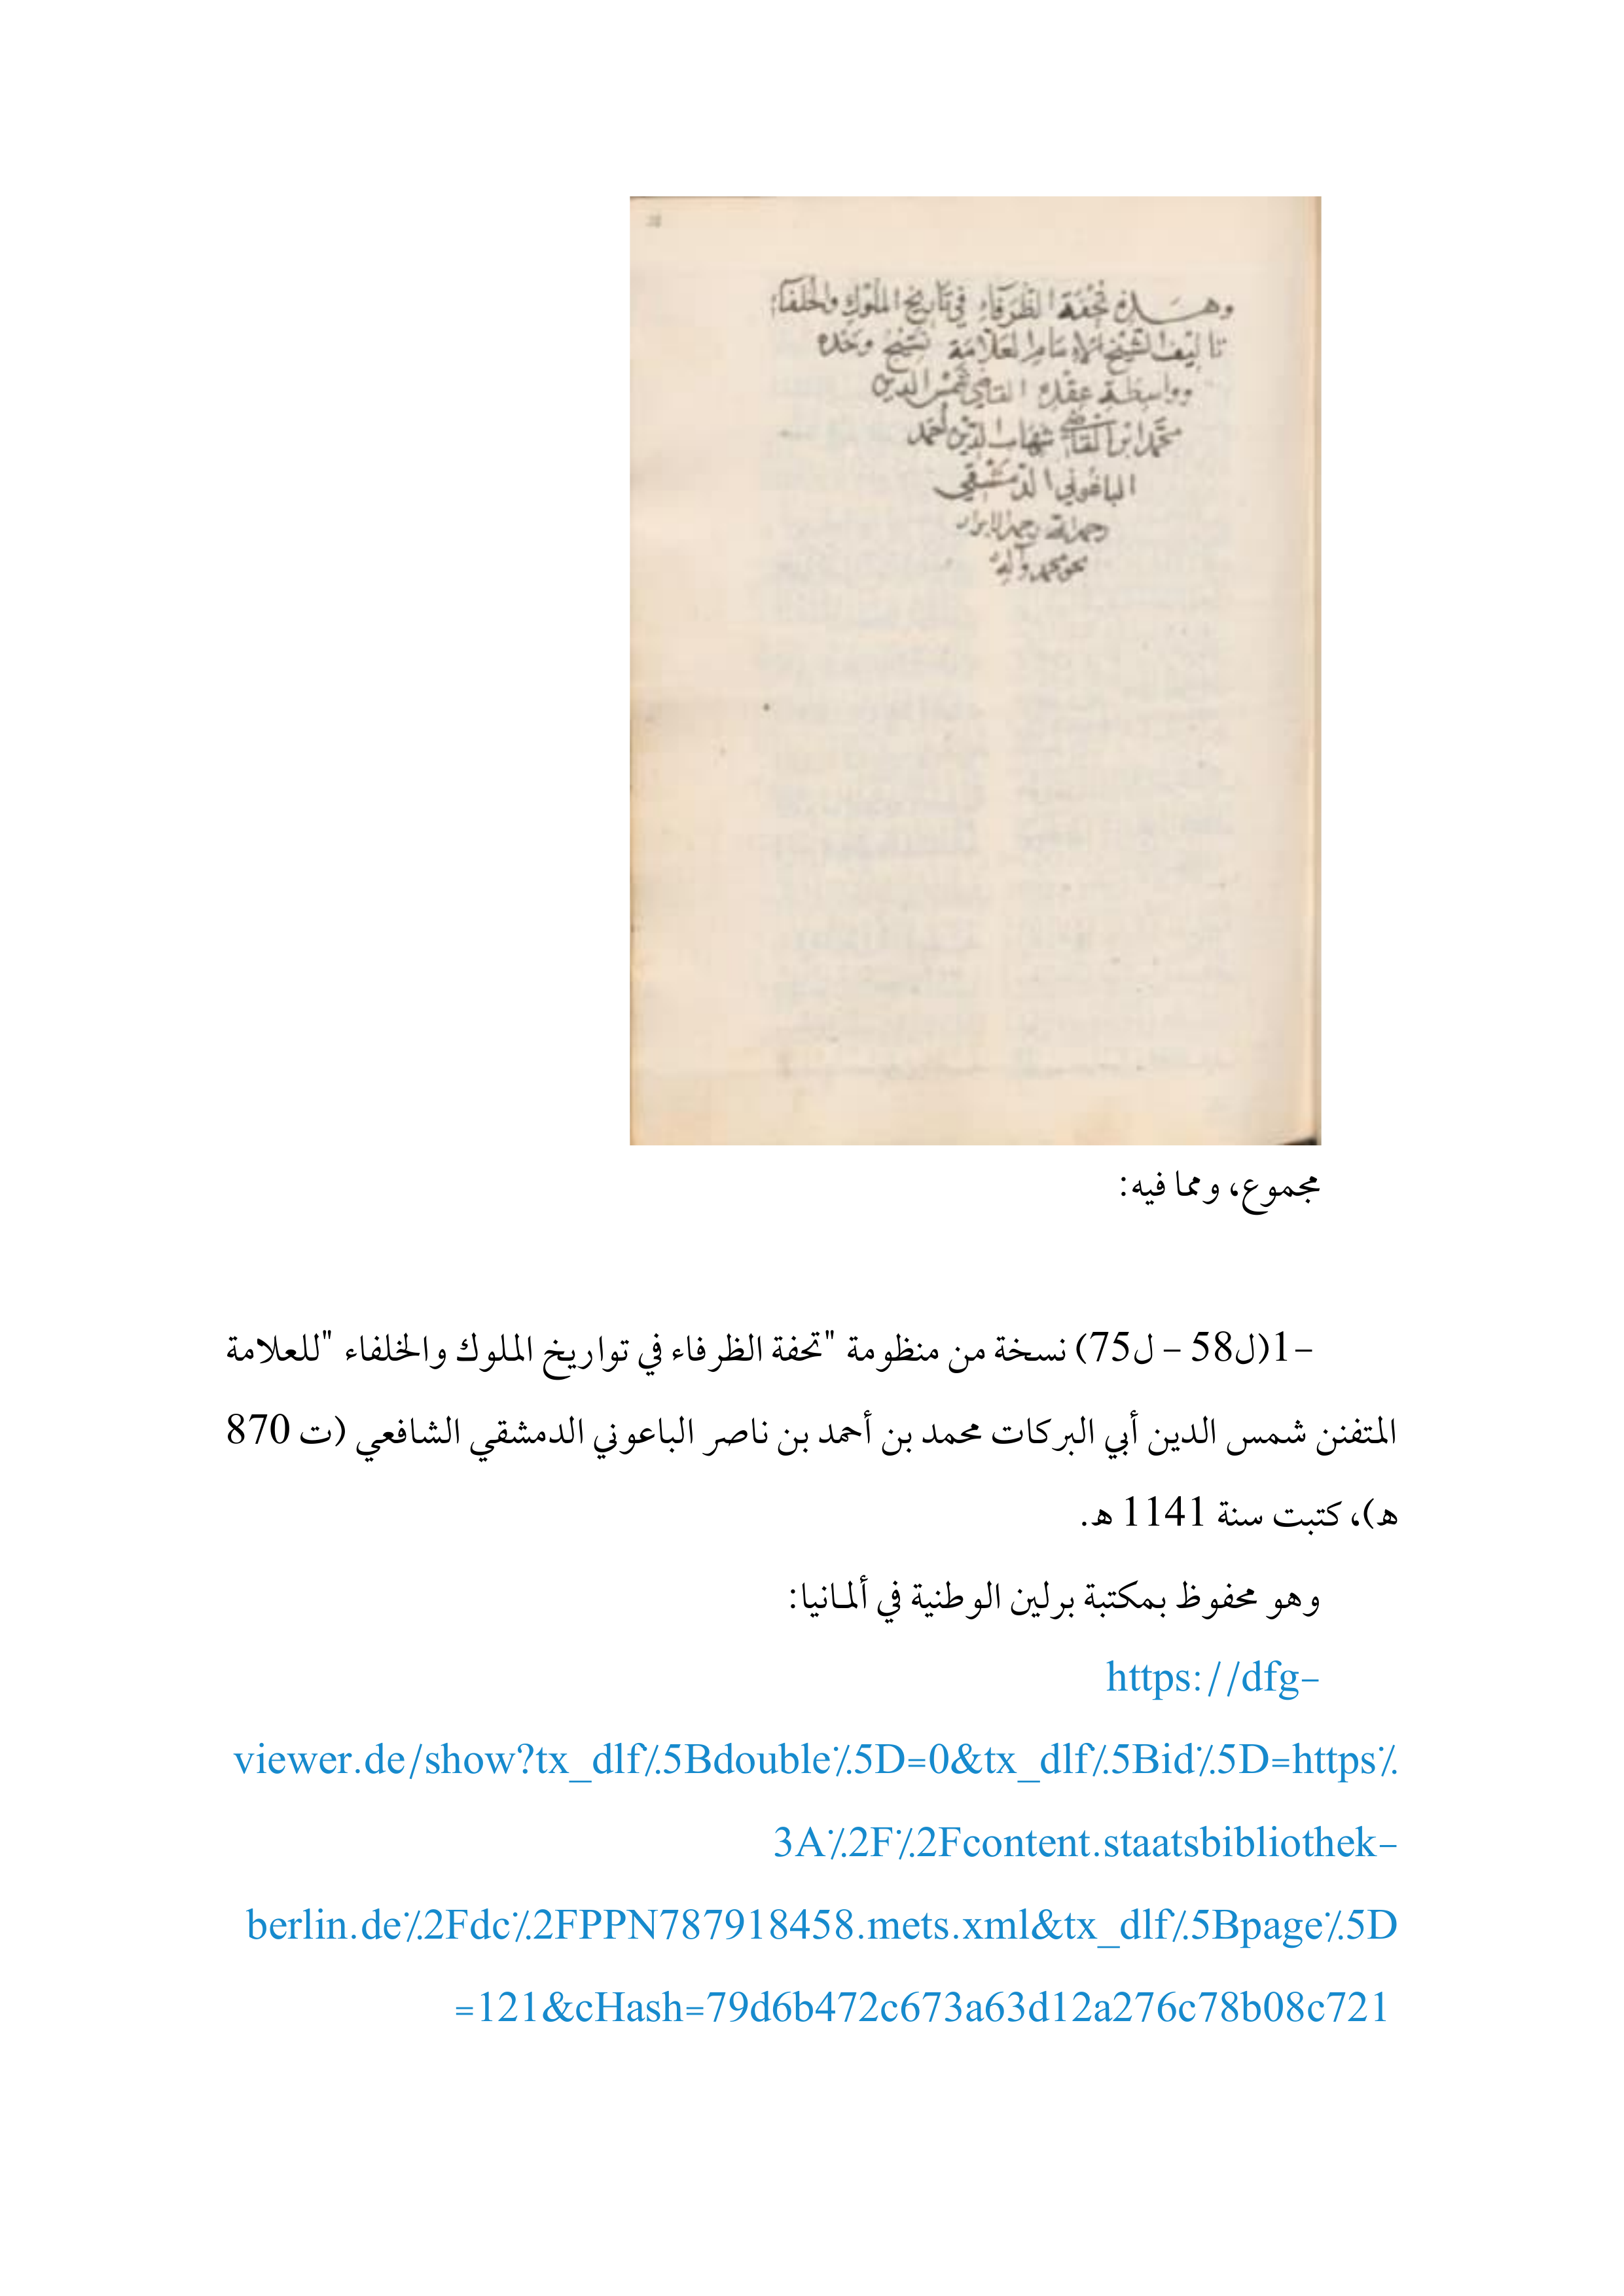 وهذه تُحْفَة الظُّرَفَاءِ فِي تَارِيخِ المُلُوكِ والخُلَفَاءِ
تاليف الشيخ الامام العلامة نسيج وحده
وواسطة عقده القاضي شمس الدين
محمد ابن القاضي شهاب الدين احمد
الباعوني الدمشقي
وآله
مجموع، ومما فيه:
-1(ل58 - ل75) نسخة من منظومة "تحفة الظرفاء في تواريخ الملوك والخلفاء "للعلامة
المتفنن شمس الدين أبي البركات محمد بن أحمد بن ناصر الباعوني الدمشقي الشافعي (ت 870
ه)، كتبت سنة 1141 ه.
وهو محفوظ بمكتبة برلين الوطنية في ألمانيا:
https://dfg-
viewer.de/show?tx_dlf%5Bdouble%5D=0&tx_dlf%5Bid%5D=https%
3A%2F%2Fcontent.staatsbibliothek-
berlin.de%2Fdc%2FPPN787918458.mets.xml&tx_dlf%5Bpage%5D
=121&cHash=79d6b472c673a63d12a276c78b08c721